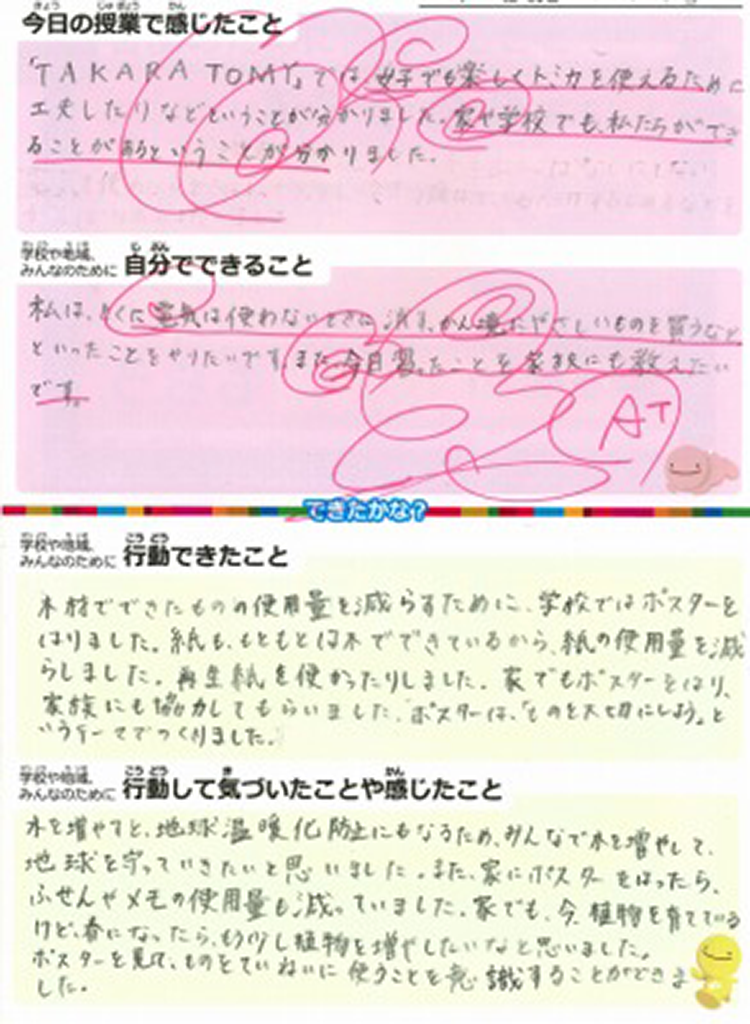 今日の授業で感じたこと
「TAKARA TOMY」では、女子でも楽しくトミカを使えるために
工夫したりなどということが分かりました。家や学校でも、私たちができ
ることがあるということが分かりました。
学校や地域、みんなのために 自分でできること
私は、とくに電気は使わないときに消す、かん境にやさしいものを買うなど
といったことをやりたいです。また、今日習ったことを家族にも教えたい
です。
AT
できたかな?
学校や地域、みんなのために 行動できたこと
木材でできたものの使用量を減らすために、学校ではポスターを
はりました。紙も、もともとは木でできているから、紙の使用量を減
らしました。再生紙を使かったりしました。家でもポスターをはり、
家族にも協力してもらいました。ポスターは、「ものを大切にしよう」と
いうテーマでつくりました。
学校や地域、みんなのために 行動して気づいたことや感じたこと
木を増やすと、地球温暖化防止にもなるため、みんなで木を増やして、
地球を守っていきたいと思いました。また、家にポスターをはったら、
ふせんやメモの使用量も減っていました。家でも、今、植物を育てている
けど、春になったら、もう少し植物を増やしたいなと思いました。
ポスターを見て、ものをていねいに使うことを意識することができま
した。